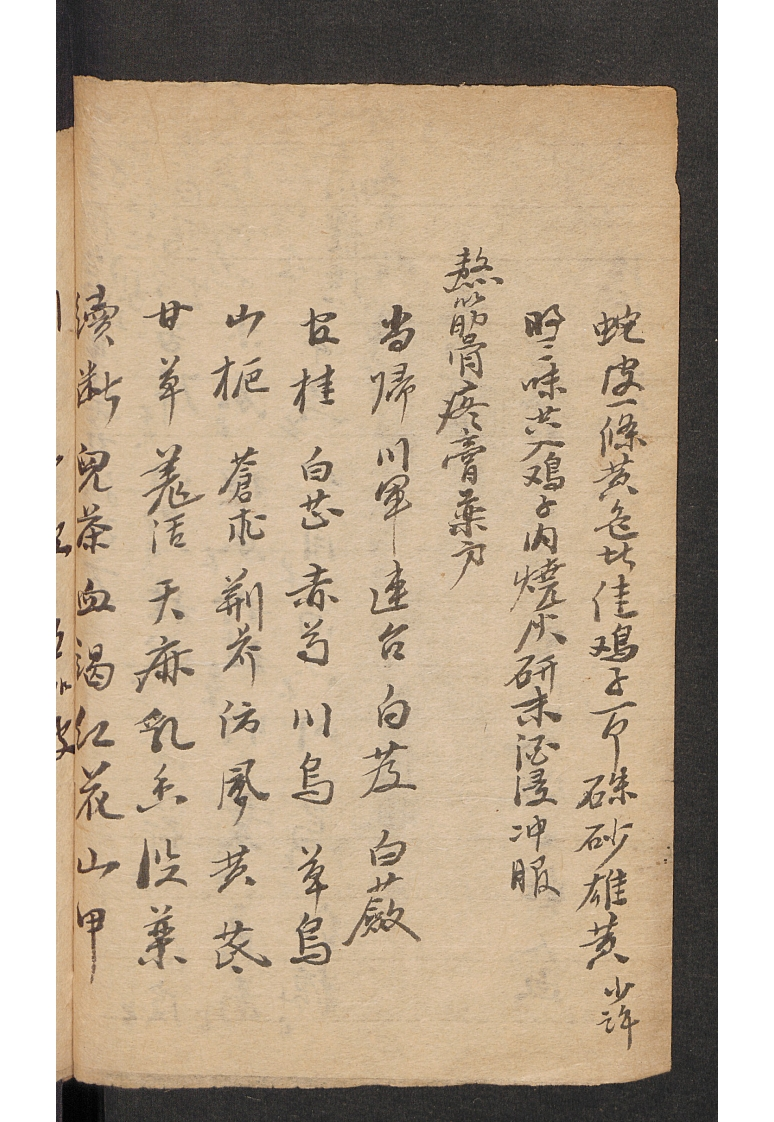 蛇皮一條黄色皆佳鸡子一个硃砂雄黄少許
三味共入鸡子内燒灰研末酒浸冲服
熬筋骨疼膏藥方
当歸 川軍 連召 白芨 白蘞
官桂 白芷 赤芍 川烏 草烏
山栀 蒼朮 荆芥 仿風 黄芪
甘草 羌活 天麻 乳香 没藥
續断 兒茶 血竭 红花 山甲